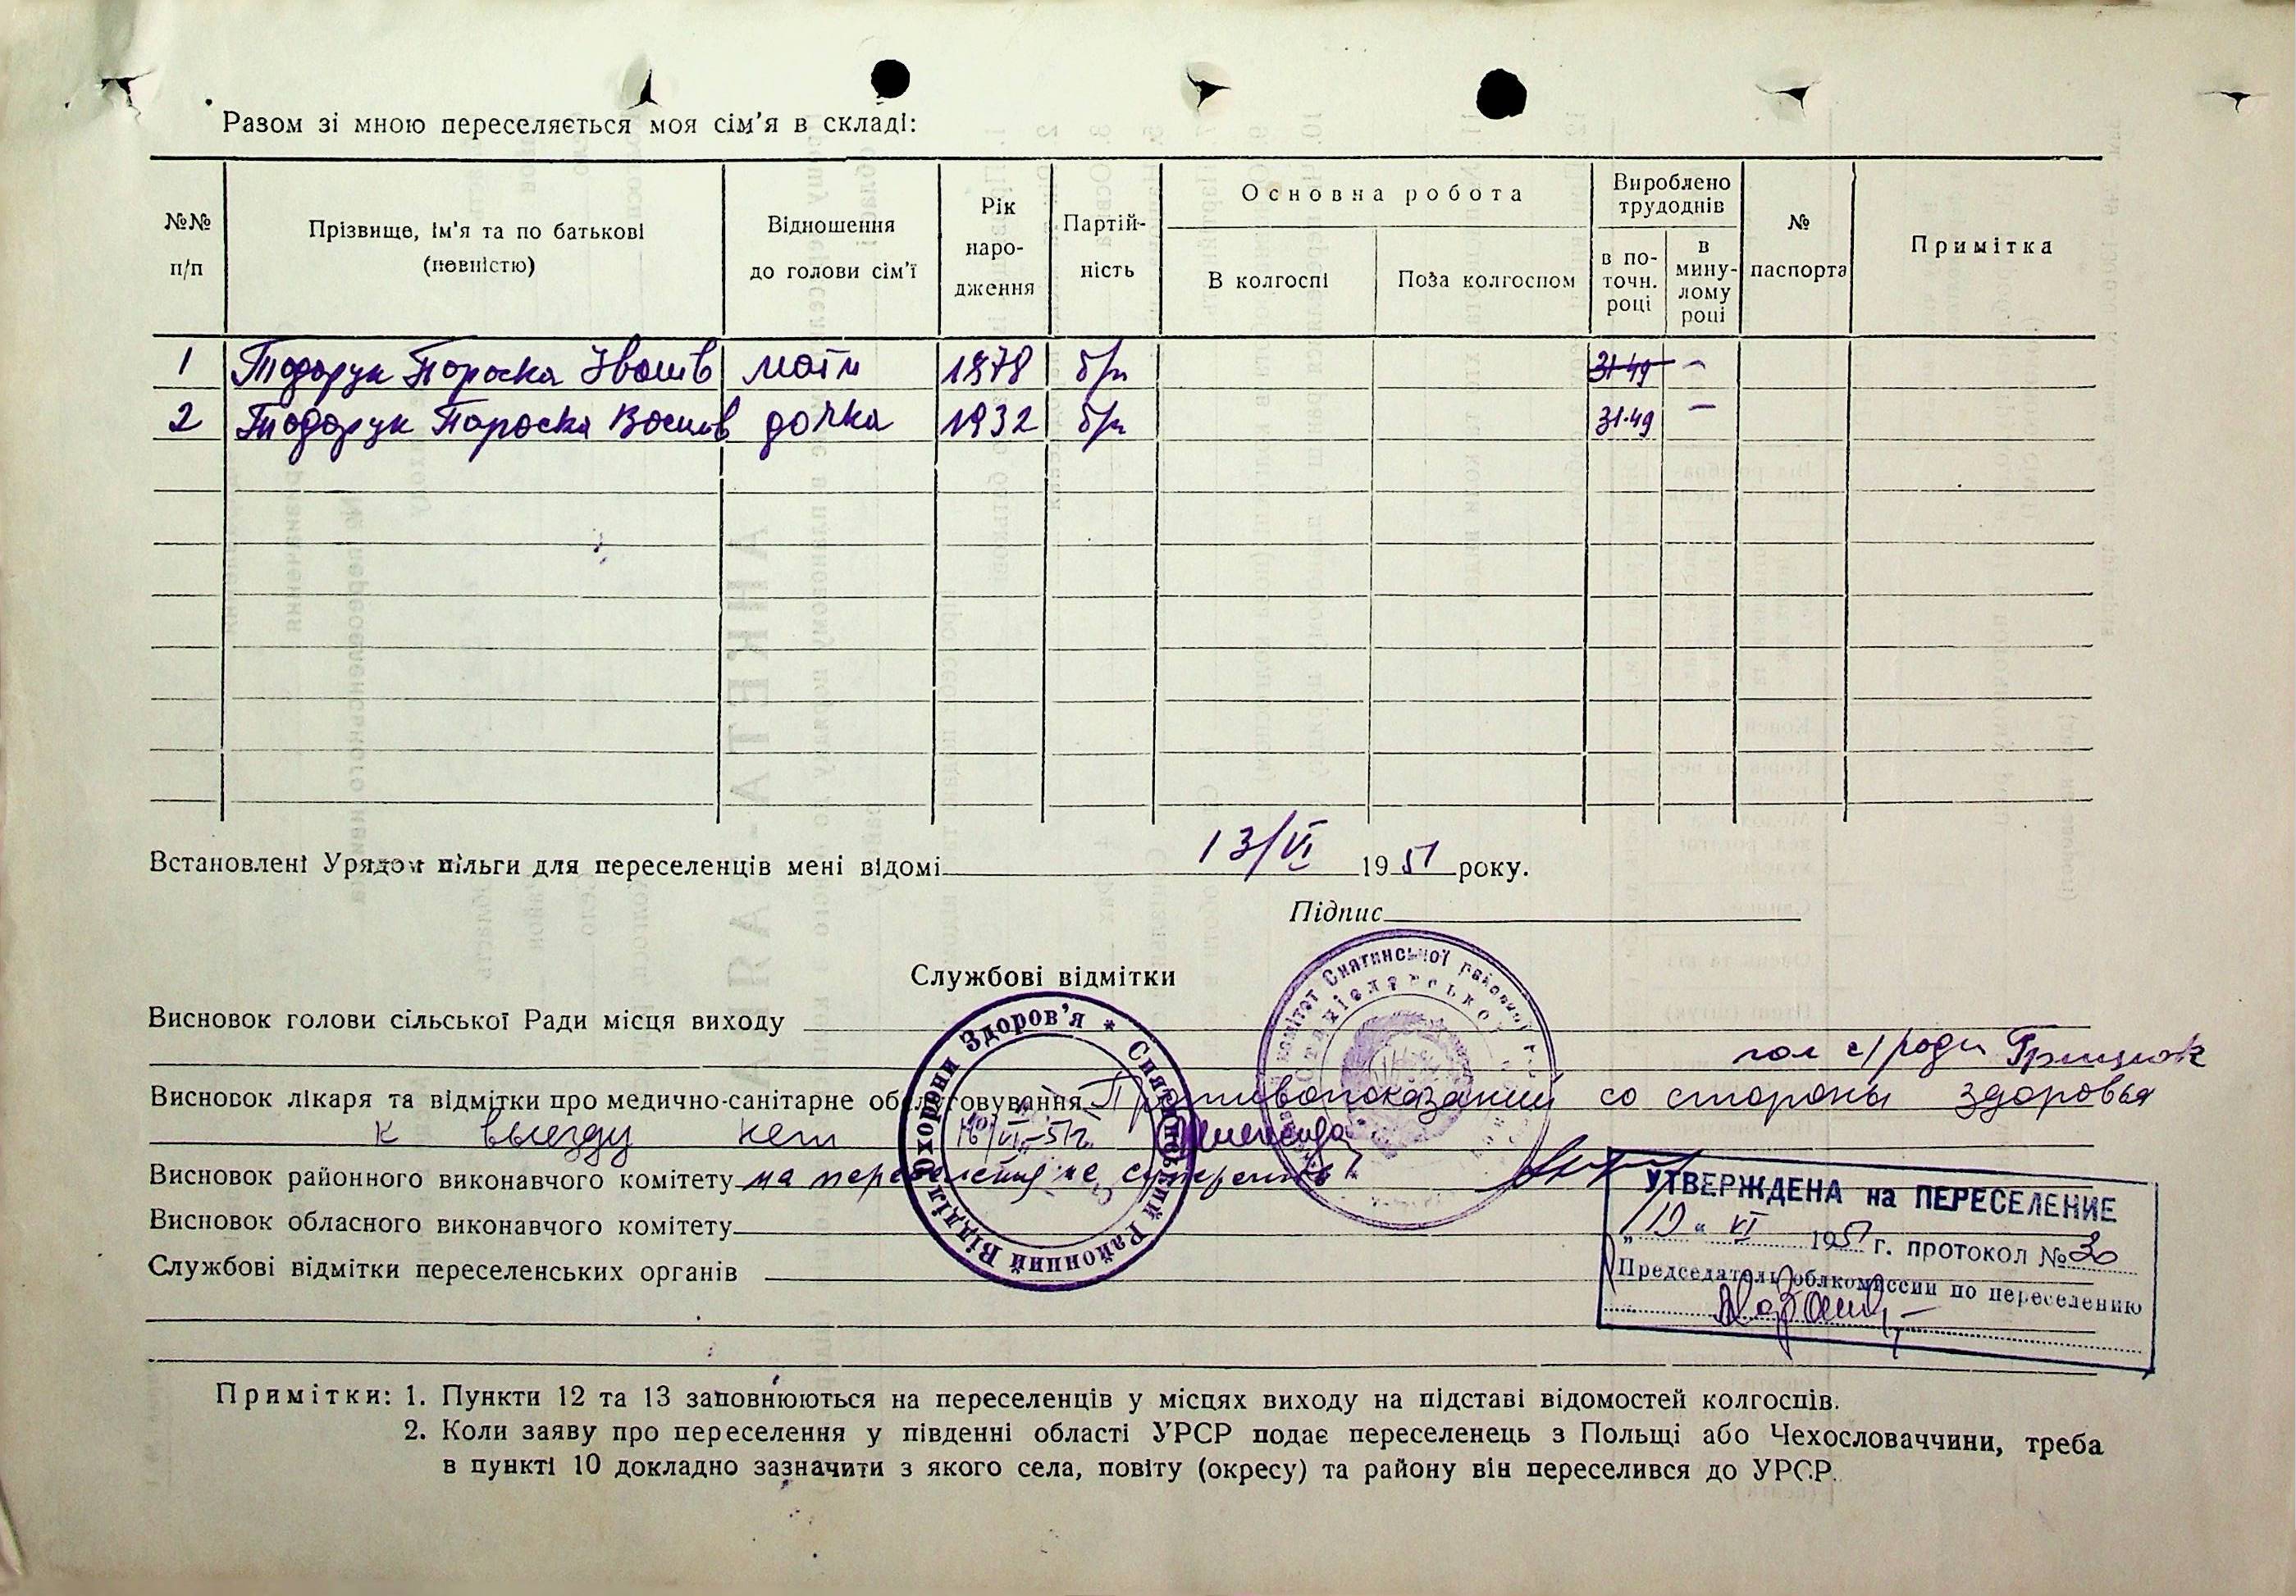 Разом зі мною переселяється моя сім'я в складі:
№№ п/п
Прізвище, ім'я та по батькові (повністю)
Відношення до голови сім'ї
Рік народження
Партійність
Основна робота
В колгоспі
Поза колгоспом
Вироблено трудоднів
в поточн. році
в минулому році
№ паспорта
Примітка
1 Тодорук Параска Іванів мати 1878 б/п 31-49 –
2 Тодорук Параска Василів дочка 1932 б/п 31-49 –
Встановлені Урядом пільги для переселенців мені відомі 13/VI 1951 року.
Підпис
Службові відмітки
Висновок голови сільської Ради місця виходу
гол с/ради Грицюк
Висновок лікаря та відмітки про медично-санітарне обслуговування Противопоказаний со стороны здоровья
к выезду нет 16/VI-51г.
Висновок районного виконавчого комітету на переселення не
Висновок обласного виконавчого комітету
Службові відмітки переселенських органів
Снятинський Районний Відділ Охорони Здоров'я *
комітет Снятинської районної
Станіславської
УТВЕРЖДЕНА на ПЕРЕСЕЛЕНИЕ
„19" VI 1951 г. протокол № 30
Председатель облкомиссии по переселению
Примітки: 1. Пункти 12 та 13 заповнюються на переселенців у місцях виходу на підставі відомостей колгоспів.
2. Коли заяву про переселення у південні області УРСР подає переселенець з Польщі або Чехословаччини, треба
в пункті 10 докладно зазначити з якого села, повіту (окресу) та району він переселився до УРСР.